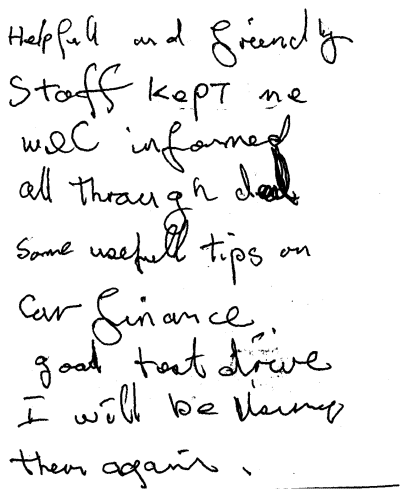 Helpfull and friendly
Staff kept me
well informed
all through deal
some usefull tips on
car finance
good test drive
I will be using
them again.